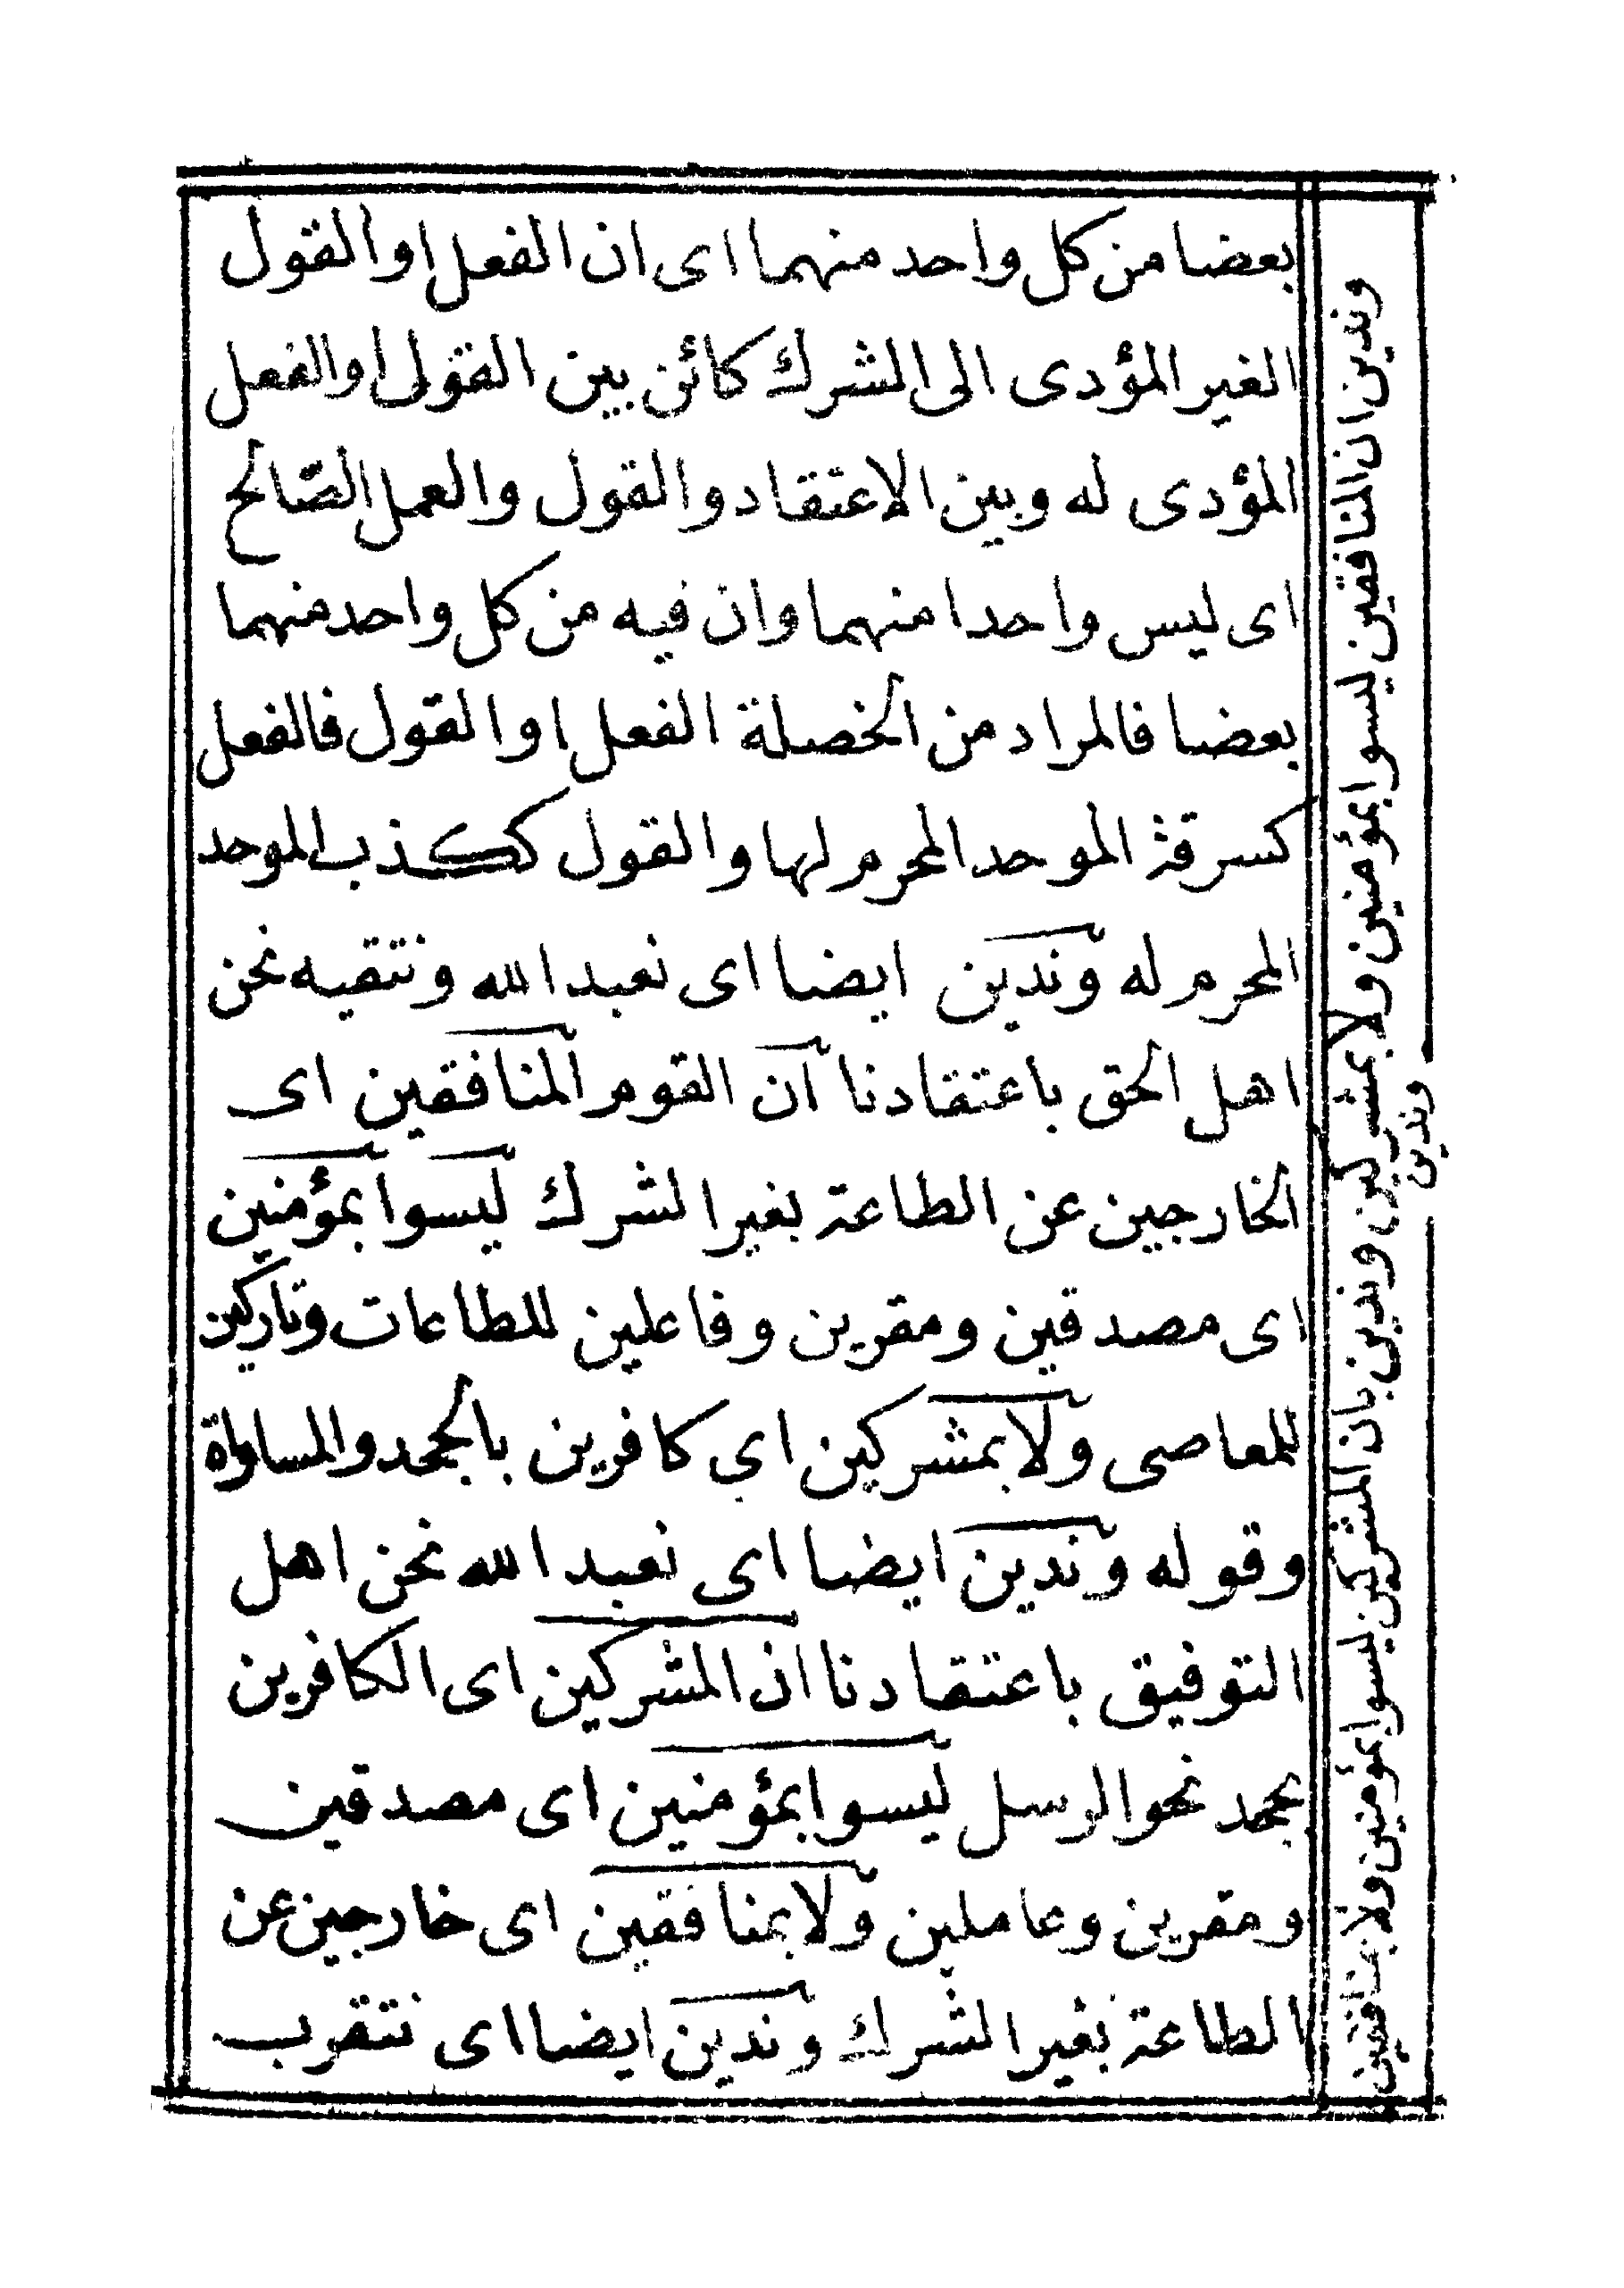 بعضا من كل واحد منهما اى ان الفعل او القول
الغير المؤدى الى الشرك كائن بين القول او الفعل
المؤدى له وبين الاعتقاد والقول والعمل الصّالح
اى ليس واحدا منهما وان فيه من كل واحد منهما
بعضا فالمراد من الخصلة الفعل او القول فالفعل
كسرقة الموحد المحرم لها والقول ككذب الموحد
المحرم له وندين ايضا اى نعبد الله ونتقيه نحن
اهل الحق باعتقادنا ان القوم المنافقين اى
الخارجين عن الطاعة بغير الشرك ليسوا بمؤمنين
اى مصدقين ومقرين وفاعلين للطاعات وتاركين
للمعاصى ولا بمشركين اي كافرين بالجحد والمساواة
وقوله وندين ايضا اى نعبد الله نحن اهل
التوفيق باعتقادنا ان المشركين اى الكافرين
بجحد نحو الرسل ليسوا بمؤمنين اى مصدقين
ومقرين وعاملين ولا بمنافقين اى خارجين عن
الطاعة بغير الشرك وندين ايضا اى نتقرب
وندين ان المنافقين ليسوا بمؤمنين ولا بمشركين وندين بان المشركين ليسوا بمؤمنين ولا بمنافقين
وندين